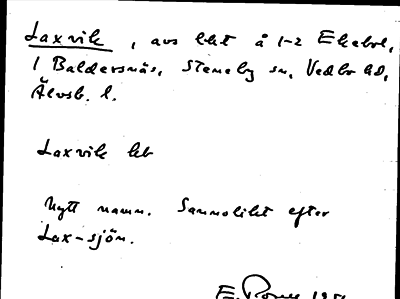 Laxvik, avs lht å 1-2 Ekebol,
1 Baldersnäs, Steneby sn, Vedbo hd,
Älvsb. l.
Laxvik lht
Nytt namn. Sannolikt efter
Lax-sjön.
E.